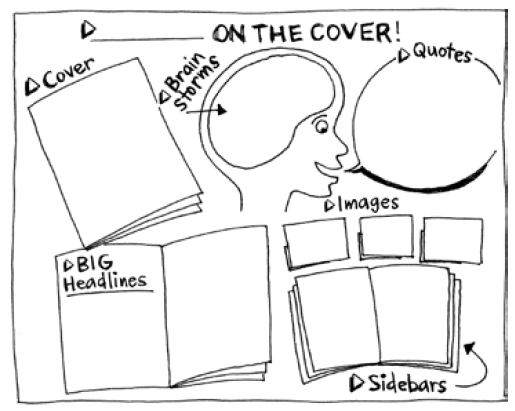 ________ ON THE COVER!
Cover
Brain
Storms
Quotes
Images
BIG
Headlines
Sidebars